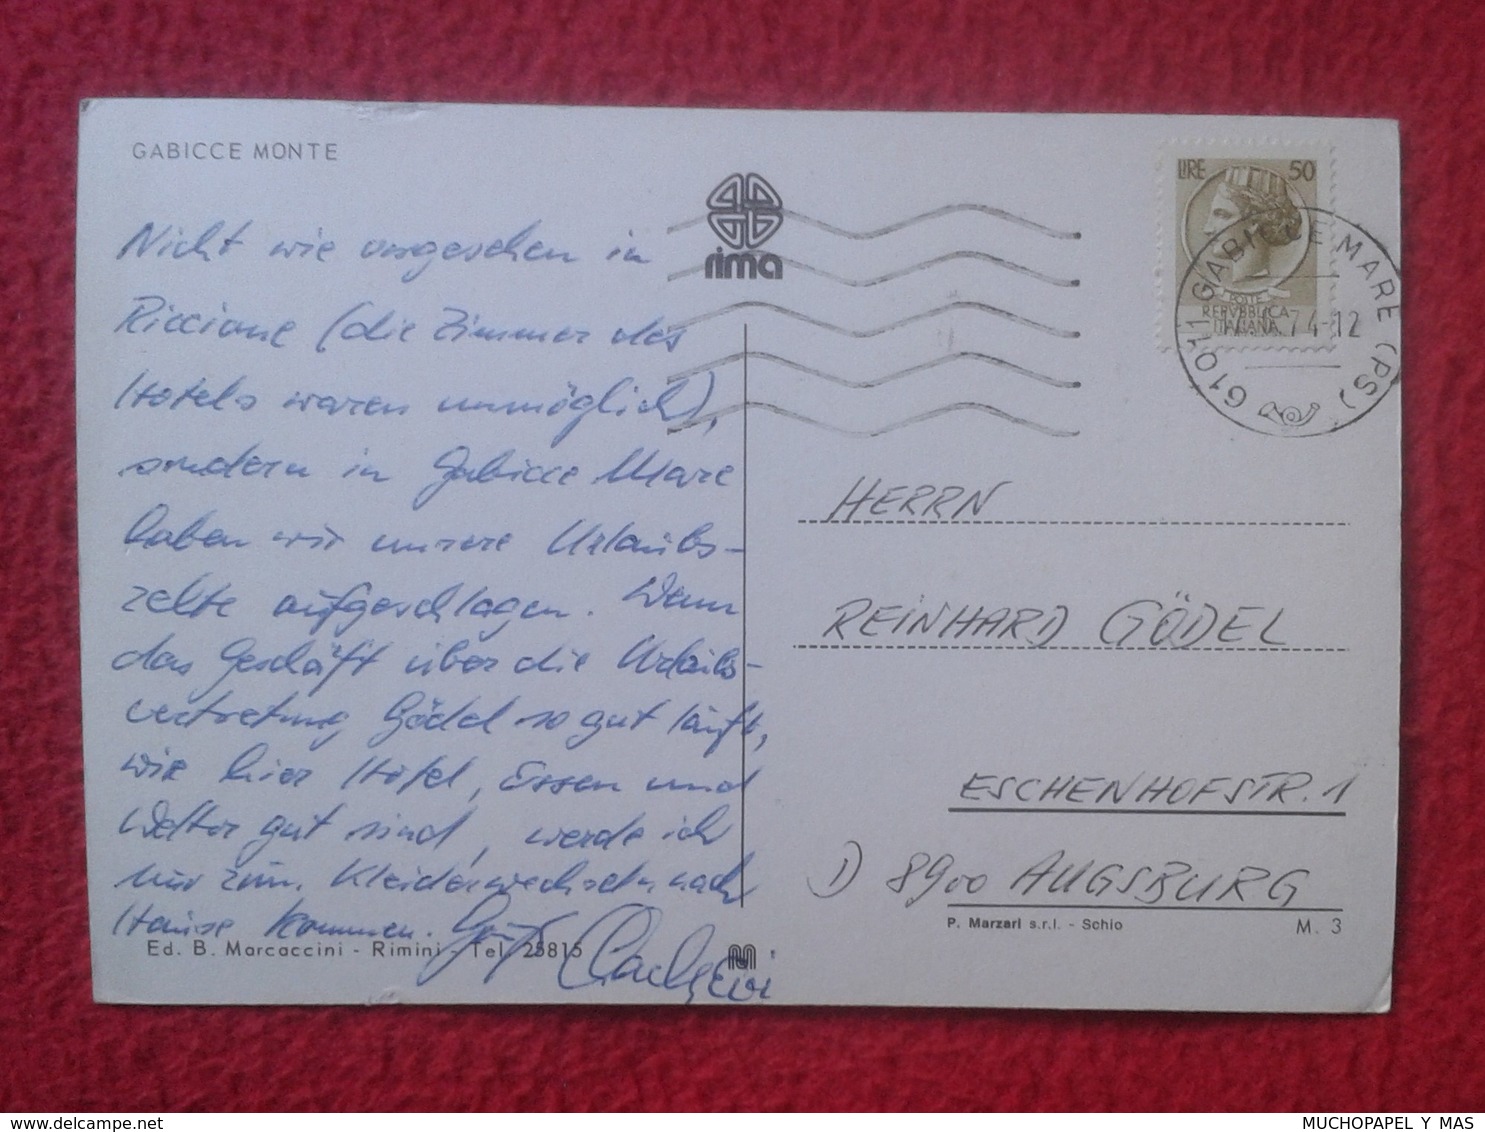 GABICCE MONTE
rima
LIRE 50
POSTE
REPVBBLICA
ITALIANA
61011 GABICCE MARE (PS)
74-12
Nicht wie vorgesehen in
Riccione (die Zimmer des
Hotels waren unmöglich),
sondern in Gabicce Mare
haben wir unsere Urlaubs-
zelte aufgeschlagen. Wenn
das Geschäft über die Urlaubs-
vertretung Gödel so gut läuft,
wie hier Hotel, Essen und
Wetter gut sind, werde ich
nur zum Kleiderwechseln nach
Hause kommen.
HERRN
REINHARD GÖDEL
ESCHENHOFSTR. 1
D 8900 AUGSBURG
Ed. B. Marcaccini - Rimini - Tel. 25815
P. Marzari s.r.l. - Schio
M. 3
www.delcampe.net
MUCHOPAPEL Y MAS